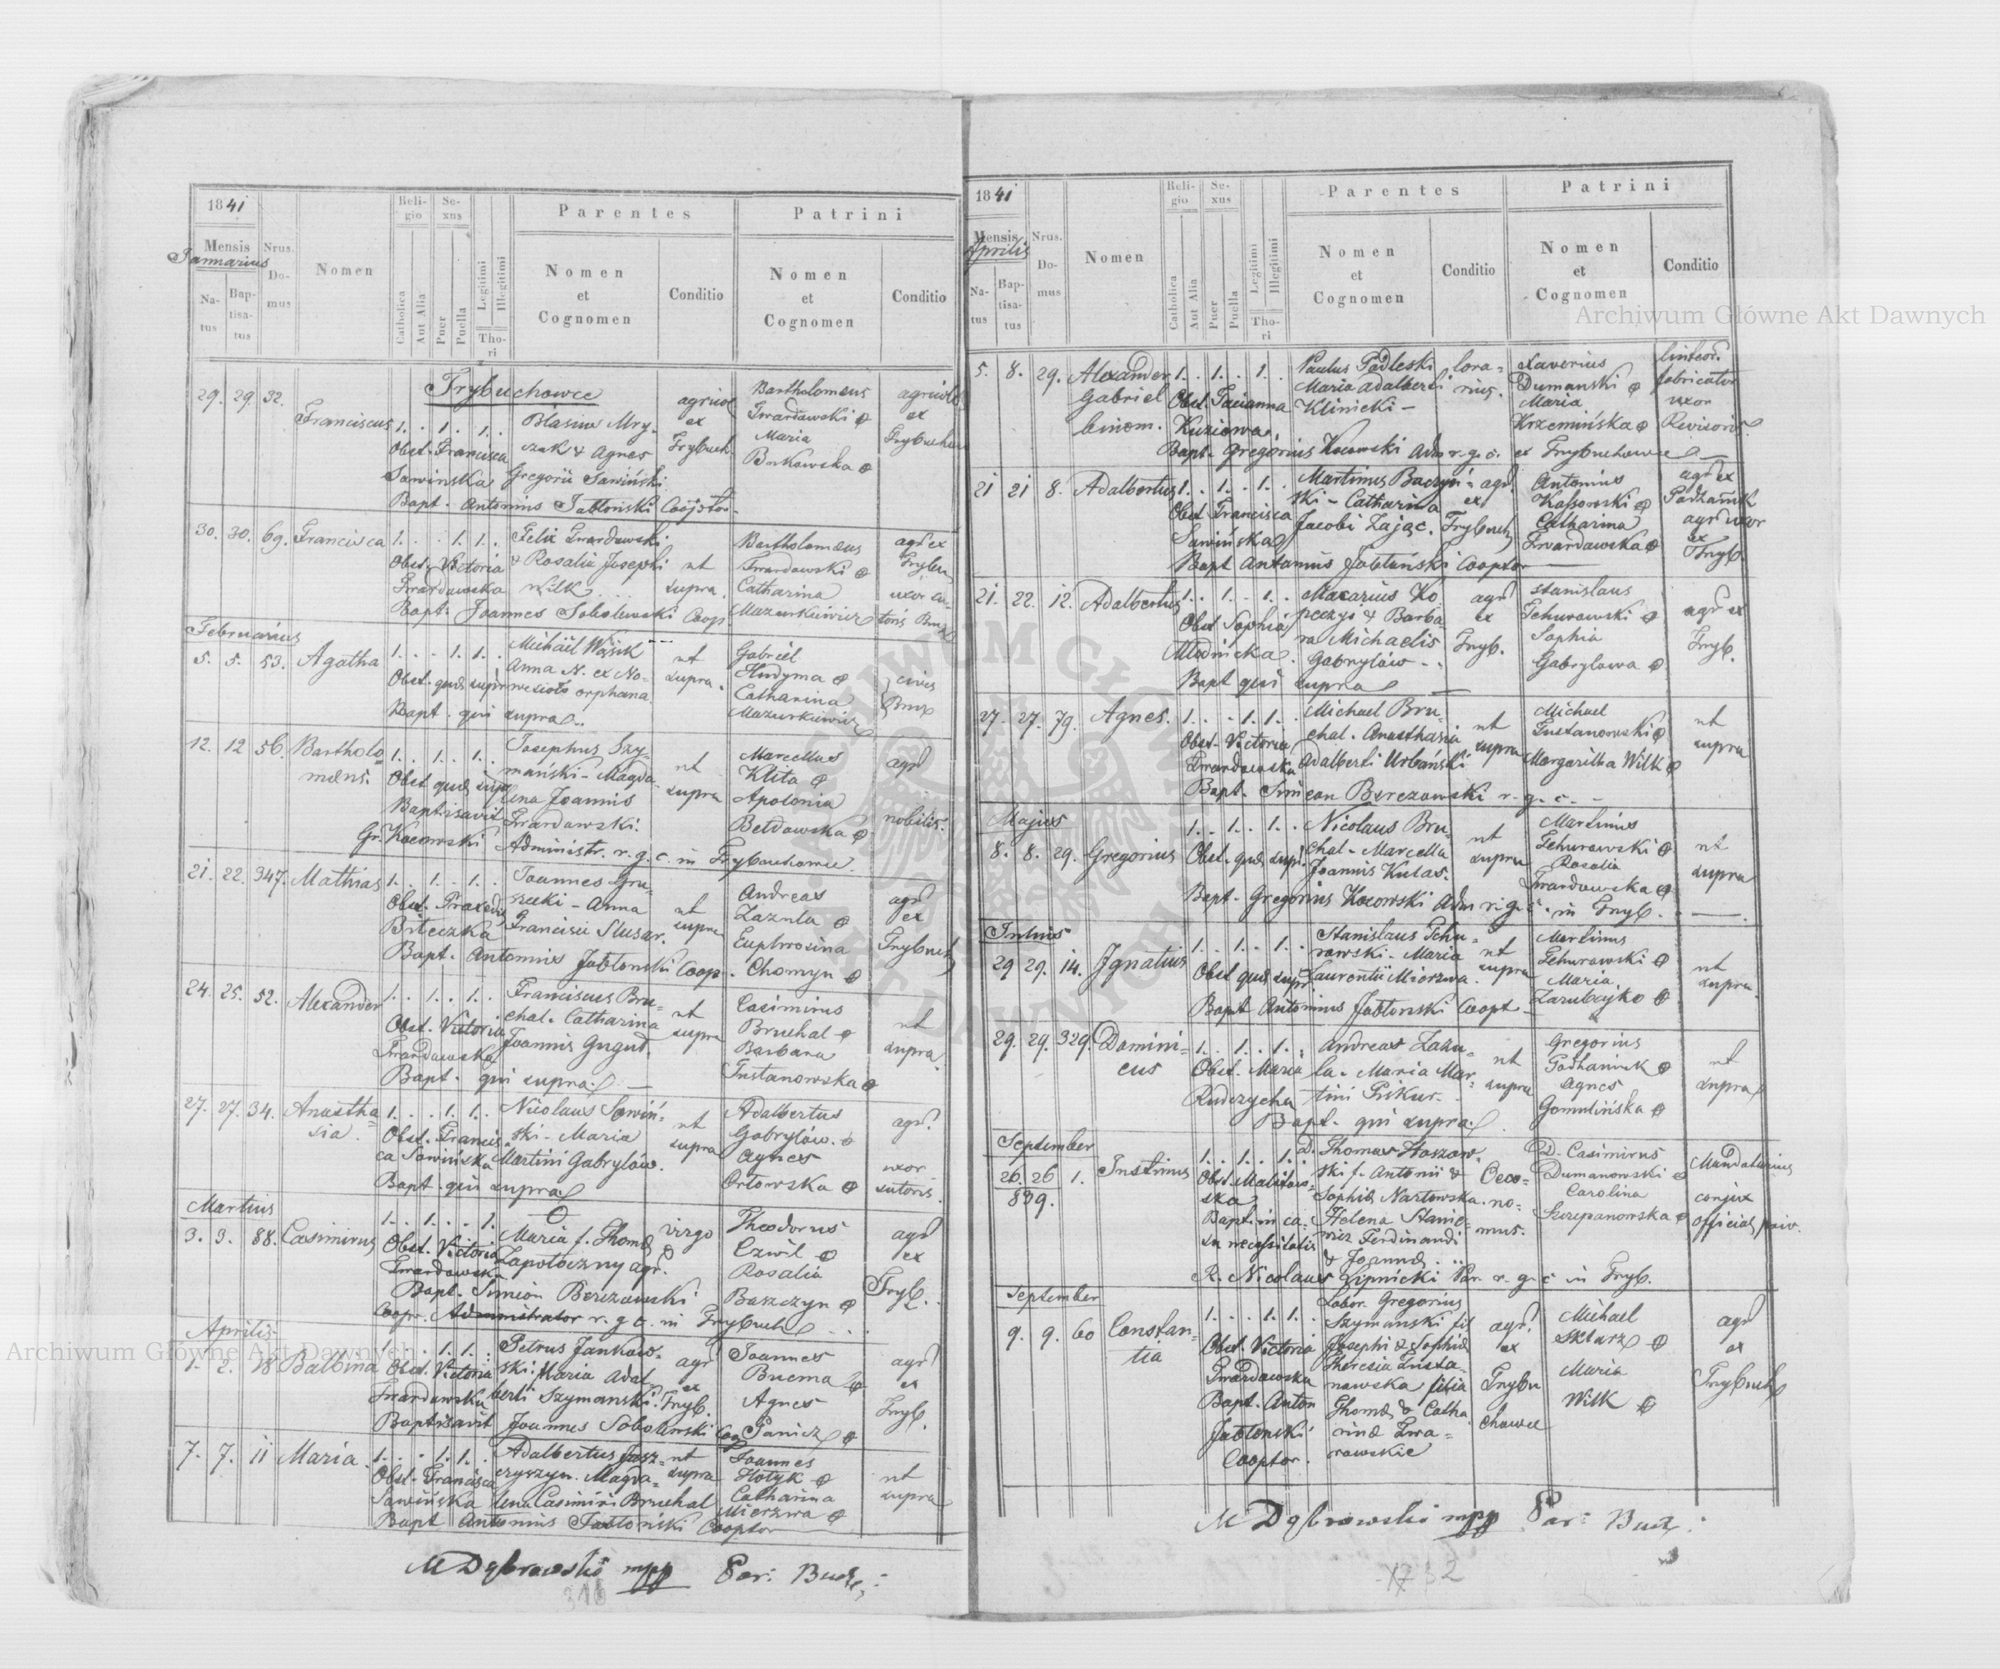 1841
Reli-
gio
Se-
xus
Parentes
Patrini
Mensis
Januarius
Nrus.
Do-
mus
Nomen
Na-
tus
Bap-
tisa-
tus
Catholica
Aut Alia
Puer
Puella
Legitimi
Illegitimi
Tho-
ri
Nomen
et
Cognomen
Conditio
Nomen
et
Cognomen
Conditio
Trybuchowce
29. 29. 32. Franciscus 1. 1. 1.
Blasius Mry-
czak & Agnes
Gregorii Sawiński
agricol
ex
Trybuch.
Bartholomæus
Twardowski
Maria
Bukowska
agricola
ex
Obst. Francisca
Sawińska
Bapt. Antonius Jabłoński
30. 30. 69. Francisca 1. 1. 1.
Felix Twardowski
& Rosalia Josephi
Wilk
ut
supra.
Bartholomæus
Twardowski
Catharina
Mazurkiewicz
agr ex
Obst. Victoria
Twardowska
Bapt. Joannes Sobolewski Coop.
Februarius
5. 5. 53. Agatha 1. 1. 1.
Michäel Wojsik
Anna N. ex No-
wesioło orphana
ut
supra.
Gabriël
Hudyma
Catharina
Mazurkiewicz
cives
Obst. quæ supr
Bapt. qui supra
12. 12 56. Bartholo-
mæus. 1. 1. 1.
Josephus Szy-
mański - Magda-
lena Joannis
Twardowski.
ut
supra
Marcellus
Klita
Apolonia
Bełdowska
agr
nobilis.
Obst quæ supr
Baptisavit
Gr. Kocowski Administr. r. g. c. in Trybuchowce
21. 22. 347. Mathias 1. 1. 1.
Joannes Gru-
szecki - Anna
Francisci Slusar.
ut
supra
Andreas
Zazula
Euphrosina
Chomyn
agr
ex
Trybuch
Obst. Praxeda
Biteczka
Bapt. Antonius Jabłonski Coop.
24. 25. 52. Alexander 1. 1. 1.
Franciscus Bru-
chal - Catharina
Joannis Gugut.
ut
supra
Casimirus
Bruchal
Barbara
Tustanowska
ut
supra.
Obst. Victoria
Twardowska
Bapt. qui supra.
27. 27. 34. Anastha-
sia. 1. 1. 1.
Nicolaus Sawiń-
ski - Maria
Martini Gabrylów.
ut
supra
Adalbertus
Gabrylów.
Agnes
Orłowska
agr.
uxor
sutoris.
Obst. Francis-
ca Sawińska
Bapt. qui supra
Martius
3. 3. 88. Casimirus 1. 1. 1.
Maria f. Thomæ
Zapotoczny agr.
virgo
Theodorus
Czwil
Rosalia
Baszczyn
agr
ex
Tryb.
Obst. Victoria
Twardowska
Bapt. Simeon Berezowski
Coop. Administrator r. g. c. in Trybuch
Aprilis
1. 2. 18 Balbina 1. 1.
Petrus Jankow-
ski. Maria Adal-
berti Szymanski.
agr
ex
Tryb.
Joannes
Bucma
Agnes
Panicz
agr
ex
Tryb.
Obst. Victoria
Twardowska
Baptisavit Joannes Sobolewski
7. 7. 11 Maria. 1. 1. 1.
Adalbertus Jasz-
czyszyn. Magda-
lena Casimiri Bruchal
ut
supra
Joannes
Hołyk
Catharina
Mierzwa
ut
supra
Obst. Francisca
Sawińska
Bapt Antonius Jabłoński Cooptor
M Dąbrowski mpp Par: Bucz.:
1841
Reli-
gio
Se-
xus
Parentes
Patrini
Mensis
Aprilis
Nrus.
Do-
mus
Nomen
Na-
tus
Bap-
tisa-
tus
Catholica
Aut Alia
Puer
Puella
Legitimi
Illegitimi
Tho-
ri
Nomen
et
Cognomen
Conditio
Nomen
et
Cognomen
Conditio
5. 8. 29. Alexander
Gabriel
binom. 1. 1. 1.
Paulus Podleski
Maria Adalberti
Klinicki -
lora-
rius.
Xaverius
Dumanski
Maria
Krzemińska
linteor.
fabricator
uxor
Revisoris.
Obst. Tacianna
Kuziowa.
Bapt. Gregorius Kocowski Adm r. g. c. ex Trybuchowce
21 21 8. Adalbertus 1. 1. 1.
Martinus Baczyń-
ski - Catharina
Jacobi Zając.
agr.
ex
Trybuch
Antonius
Catharina
Twardowska
agr ex
agr uxor
ex
Tryb.
Obst. Francisca
Sawińska
Bapt Antonius Jabłuński Cooptor
21. 22. 12. Adalbertus 1. 1. 1.
Macarius Ko
peczyi & Barba-
ra Michaelis
Gabrylów -
agr
ex
Tryb.
Stanislaus
Tchurowski
Sophia
Gabrylowa
agr ex
Tryb.
Obst Sophia
Młodnicka.
Bapt qui supra
27. 27. 79. Agnes. 1. 1. 1.
Michael Bru-
chal - Anasthasia
Adalberti Urbański
ut
supra
Michael
Tustanowski
Margaritha Wilk
ut
supra
Obst - Victoria
Twardowska
Bapt. Simeon Berezowski r. g. c.
Majus
8. 8. 29. Gregorius 1. 1. 1.
Nicolaus Bru-
chal - Marcella
Joannis Kulas.
ut
supra
Martinus
Tchurowski
Rosalia
Twardowska
ut
supra
Obst. quæ supr.
Bapt. Gregorius Kocowski Adm r. g. c. in Tryb.
Junius
29 29. 14. Ignatius 1. 1. 1.
Stanislaus Tchu-
rowski - Maria
Laurentii Mierzwa.
ut
supra
Martinus
Tchurowski
Maria
Zarubajko
ut
supra.
Obst quæ supr.
Bapt Antonius Jabłonski Coopt
29. 29. 329. Domini-
cus 1. 1. 1.
Andreas Zazu-
la - Maria Mar-
tini Piskur -
ut
supra
Gregorius
Podhaniuk
Agnes
Gomulińska
ut
supra
Obst. Maria
Rudczycha
Bapt. qui supra.
September
26. 26 1.
839. Justinus 1. 1. 1.
D. Thomas Hoszow-
ski f. Antonii &
Sophiæ Nartowska.
Helena Stanie-
wicz Ferdinandi
& Joannæ
Oeco-
no-
mus.
D. Casimirus
Dumanowski
Carolina
Szczepanowska
Mandatarius
conjux
official. priv.
Bapt. in ca-
su necessitatis
R. Nicolaus Lipnicki Par. r. g. c in Tryb.
September
9. 9. 60 Constan-
tia 1. 1. 1.
Labor. Gregorius
Szymanski fil
Josephi & Sophiæ
Theresia Tusta-
nowska filia
Thomæ & Catha
rinæ Twa-
rowskie
agr.
ex
Trybu
chowce
Michael
Sklarz
Maria
Wilk
agr
ex
Trybuch
Obst. Victoria
Twardowska
Bapt. Anton
Jabłonski
Cooptor.
M Dąbrowski mpp Par: Bucz.:
732
Archiwum Główne Akt Dawnych
Archiwum Główne Akt Dawnych
ARCHIWUM GŁÓWNE AKT DAWNYCH